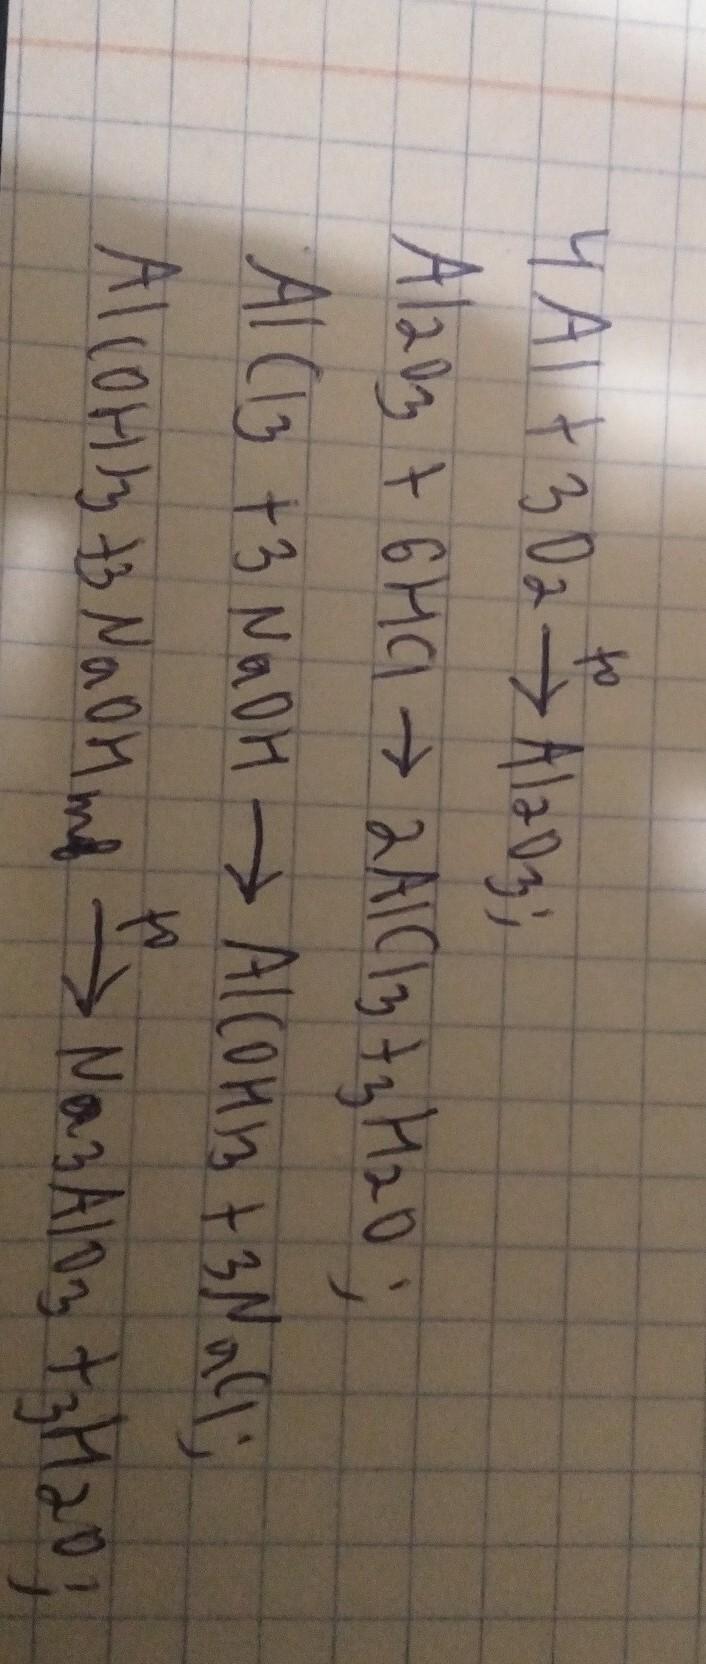 4Al + 3O2 →t° Al2O3;
Al2O3 + 6HCl → 2AlCl3 + 3H2O;
AlCl3 + 3NaOH → Al(OH)3 + 3NaCl;
Al(OH)3 + 3NaOH тв →t° Na3AlO3 + 3H2O;